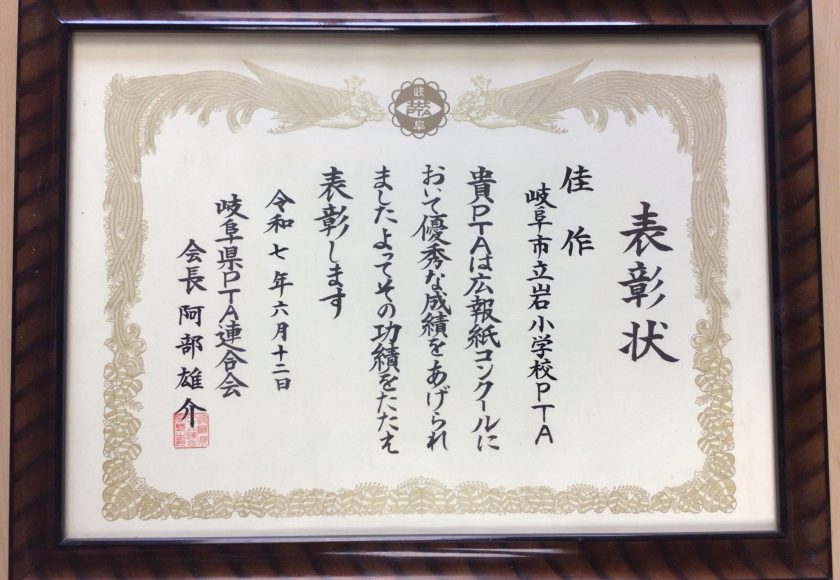 岐阜
表彰状
佳作
岐阜市立岩小学校PTA
貴PTAは広報紙コンクールに
おいて優秀な成績をあげられ
ましたよってその功績をたたえ
表彰します
令和七年六月十二日
岐阜県PTA連合会
会長 阿部雄介